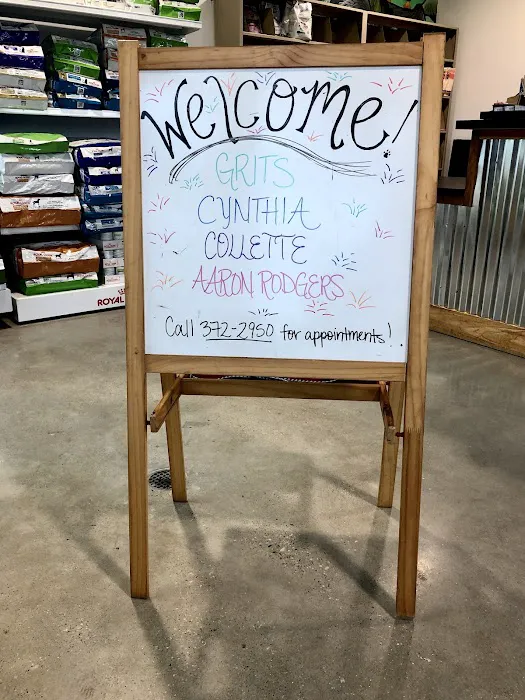 Welcome!
GRITS
CYNTHIA
COLLETTE
AARON RODGERS
Call 372-2950 for appointments!
ROYAL